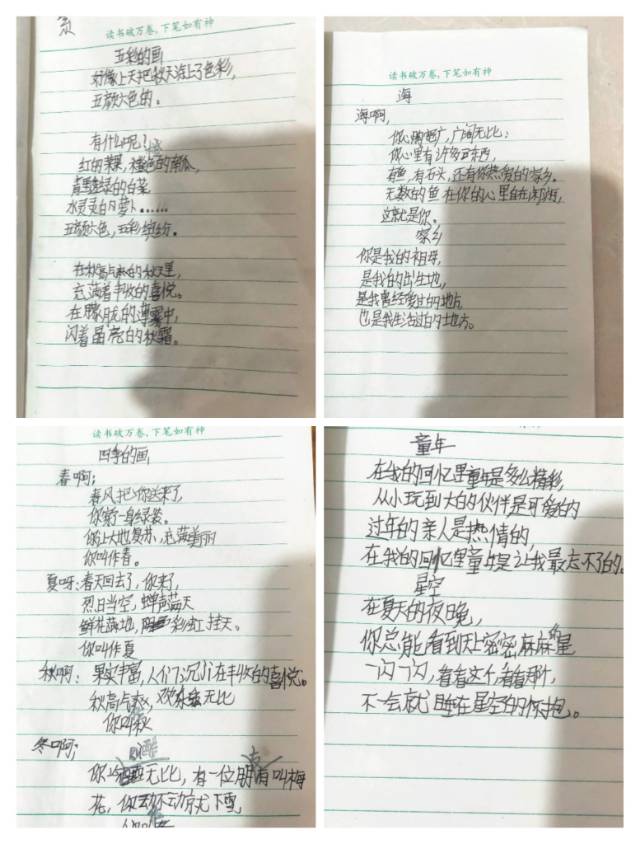 读书破万卷，下笔如有神
五彩的画
好像上天把秋天涂上了色彩，
五颜六色的。
有什么呢？
红的苹果，橙色的南瓜，
青翠绿的白菜
水灵灵的萝卜……
五颜六色，五彩缤纷。
在秋高气爽的秋天里，
充满着丰收的喜悦。
在朦胧的薄雾中，
闪着晶亮的秋霜。
读书破万卷，下笔如有神
海
海啊，
你心胸宽广，广阔无比；
你心里有许多东西，
有鱼，有石头，还有你热爱的家乡。
无数的鱼在你的心里自在闲游，
这就是你。
家乡
你是我的祖母，
是我的出生地，
是我曾经居住的地方
也是我生活过的地方。
读书破万卷，下笔如有神
四季的画
春啊；
春风把你送来了，
你穿着一身绿装。
你让大地复苏，充满美丽
你叫作春。
夏呀：春天回去了，你来了，
烈日当空，蝉声蓝天
鲜花满地，彩虹挂天。
你叫作夏
秋啊：果实丰富，人们沉沁在丰收的喜悦。
秋高气爽，欢乐无比
你叫秋
冬啊；
你冷酷无比，有一位朋友叫梅
花，你动不动就下雪，
童年
在我的回忆里童年是多么精彩，
从小玩到大的伙伴是可爱的
过年的亲人是热情的，
在我的回忆里童年是让我最忘不了的。
星空
在夏天的夜晚，
你总能看到天上密密麻麻的星
一闪一闪，看看这个，看看那个，
不一会就睡在星空的怀抱。